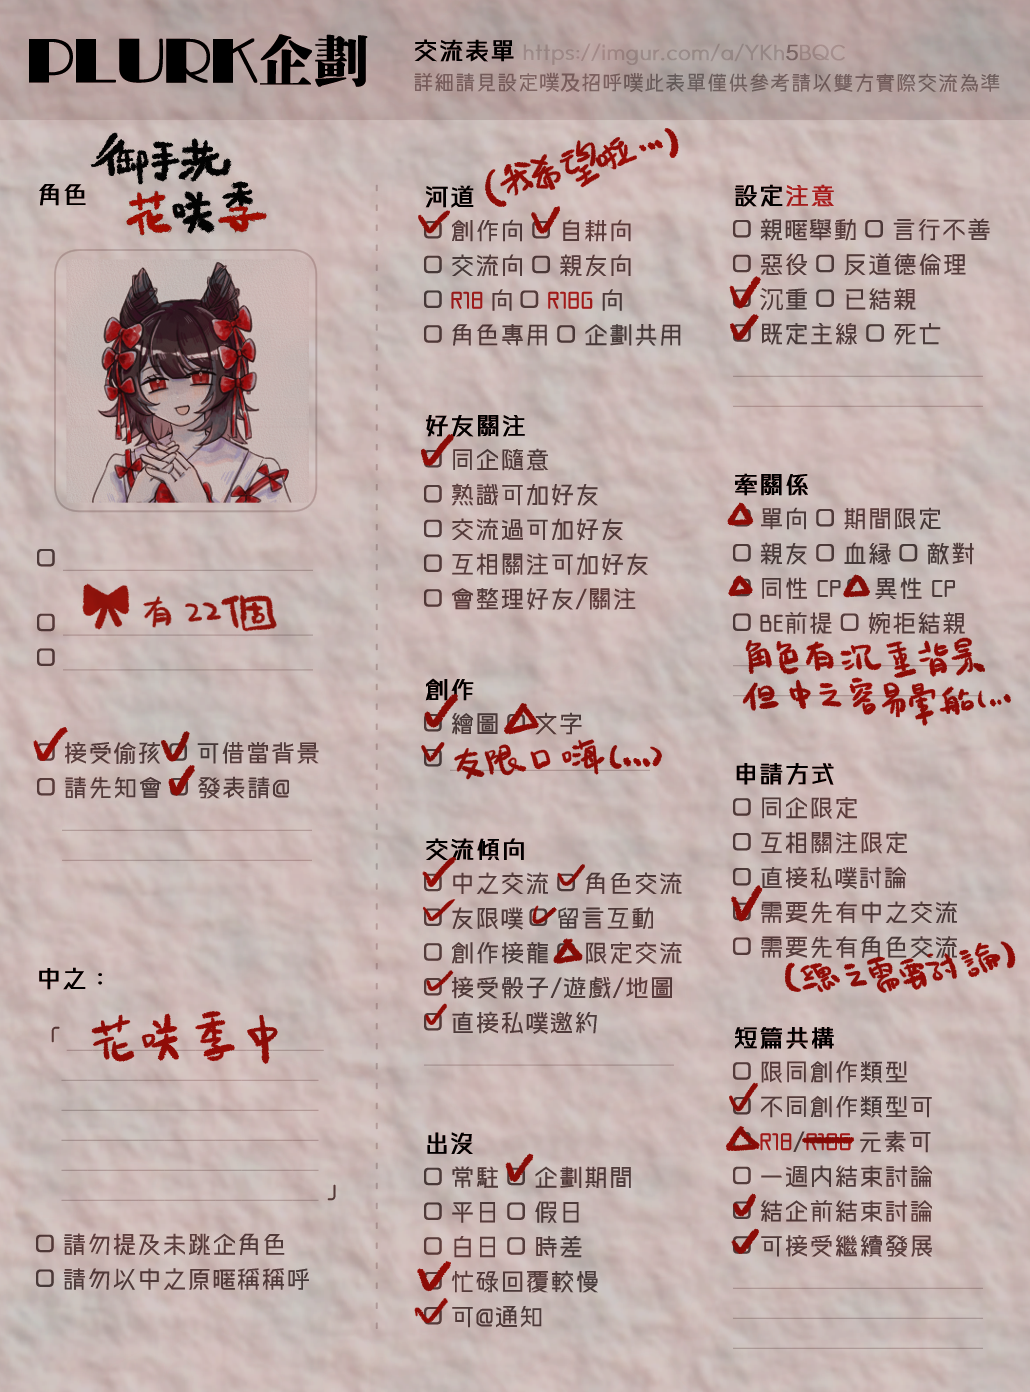 PLURK企劃
交流表單 https://imgur.com/a/YKh5BQC
詳細請見設定噗及招呼噗此表單僅供參考請以雙方實際交流為準
角色
御手洗
花咲季
有22個
接受偷孩 可借當背景
請先知會 發表請@
中之：
「
花咲季中
」
請勿提及未跳企角色
請勿以中之原暱稱稱呼
河道 (我希望啦…)
創作向 自耕向
交流向 親友向
R18 向 R18G 向
角色專用 企劃共用
好友關注
同企隨意
熟識可加好友
交流過可加好友
互相關注可加好友
會整理好友/關注
創作
繪圖 文字
友限口嗨(...)
交流傾向
中之交流 角色交流
友限噗 留言互動
創作接龍 限定交流
接受骰子/遊戲/地圖
直接私噗邀約
出沒
常駐 企劃期間
平日 假日
白日 時差
忙碌回覆較慢
可@通知
設定注意
親暱舉動 言行不善
惡役 反道德倫理
沉重 已結親
既定主線 死亡
牽關係
單向 期間限定
親友 血緣 敵對
同性 CP 異性 CP
BE前提 婉拒結親
角色有沉重背景
但中之容易暈船(...
申請方式
同企限定
互相關注限定
直接私噗討論
需要先有中之交流
需要先有角色交流
(總之需要討論)
短篇共構
限同創作類型
不同創作類型可
R18/R18G 元素可
一週内結束討論
結企前結束討論
可接受繼續發展